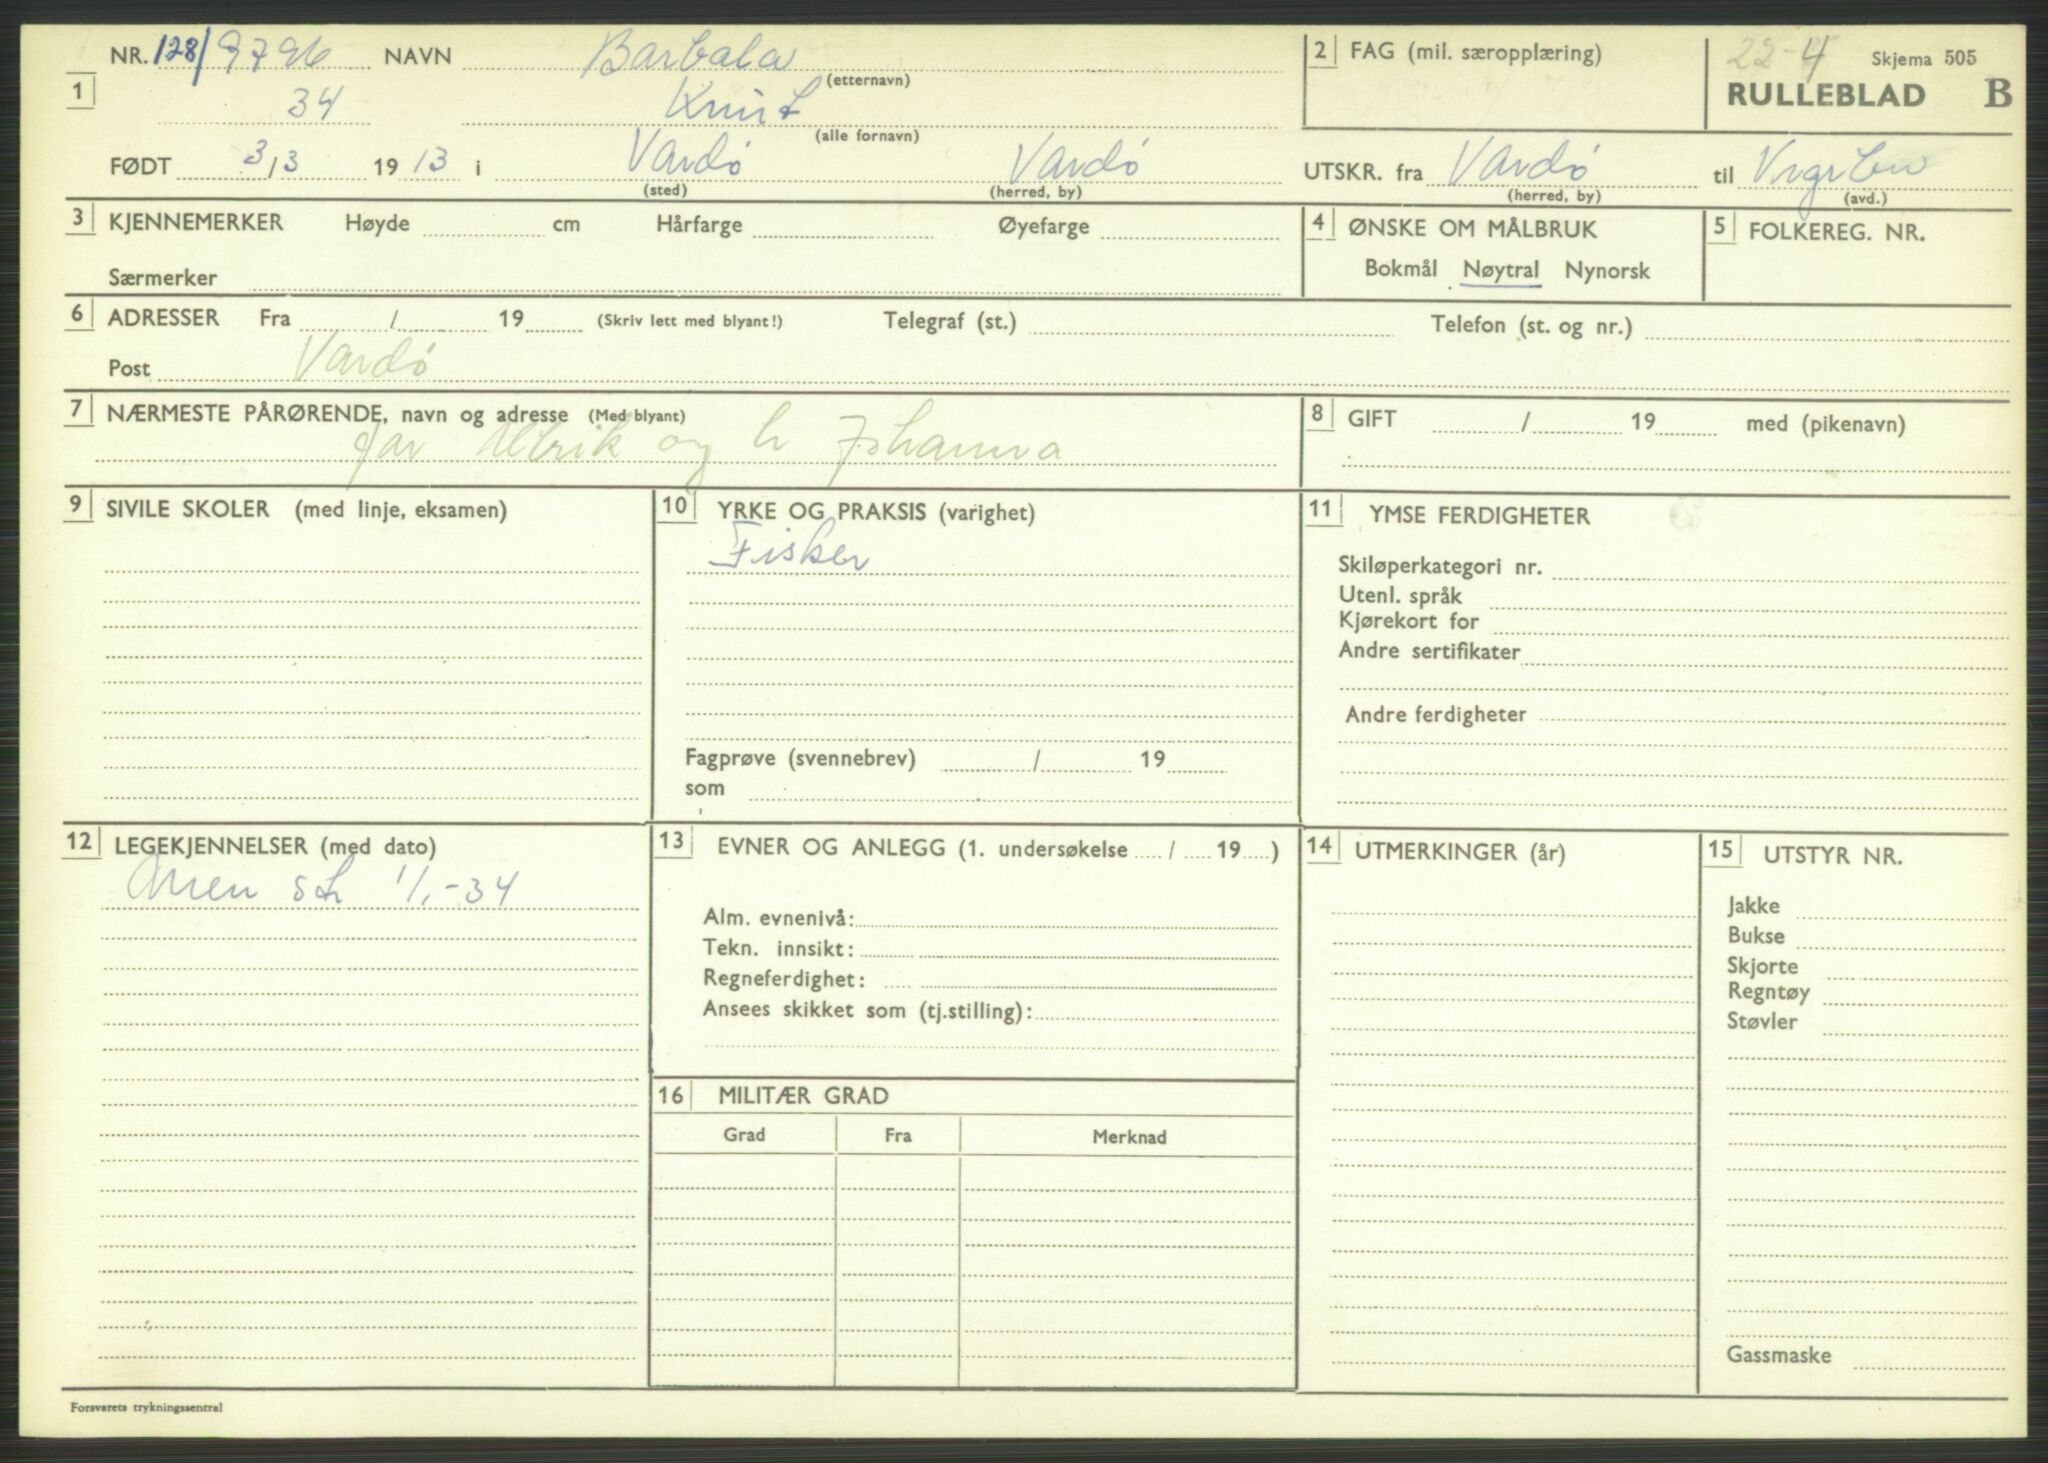 NR. 128/9796 NAVN Barbala (etternavn)
1 34 Knut (alle fornavn)
FØDT 3/3 1913 i Vardø (sted) Vardø (herred, by)
2 FAG (mil. særopplæring)
22-4 Skjema 505
RULLEBLAD B
UTSKR. fra Vardø (herred, by) til (avd.)
3 KJENNEMERKER Høyde cm Hårfarge Øyefarge
Særmerker
4 ØNSKE OM MÅLBRUK
Bokmål Nøytral Nynorsk
5 FOLKEREG. NR.
6 ADRESSER Fra / 19 (Skriv lett med blyant!) Telegraf (st.) Telefon (st. og nr.)
Post Vardø
7 NÆRMESTE PÅRØRENDE, navn og adresse (Med blyant)
far Ulrik og h Johanna
8 GIFT / 19 med (pikenavn)
9 SIVILE SKOLER (med linje, eksamen)
10 YRKE OG PRAKSIS (varighet)
Fisker
Fagprøve (svennebrev) / 19
som
11 YMSE FERDIGHETER
Skiløperkategori nr.
Utenl. språk
Kjørekort for
Andre sertifikater
Andre ferdigheter
12 LEGEKJENNELSER (med dato)
st 1/1-34
13 EVNER OG ANLEGG (1. undersøkelse / 19 )
Alm. evnenivå:
Tekn. innsikt:
Regneferdighet:
Ansees skikket som (tj.stilling):
14 UTMERKINGER (år)
15 UTSTYR NR.
Jakke
Bukse
Skjorte
Regntøy
Støvler
Gassmaske
16 MILITÆR GRAD
Grad Fra Merknad
Forsvarets trykningssentral